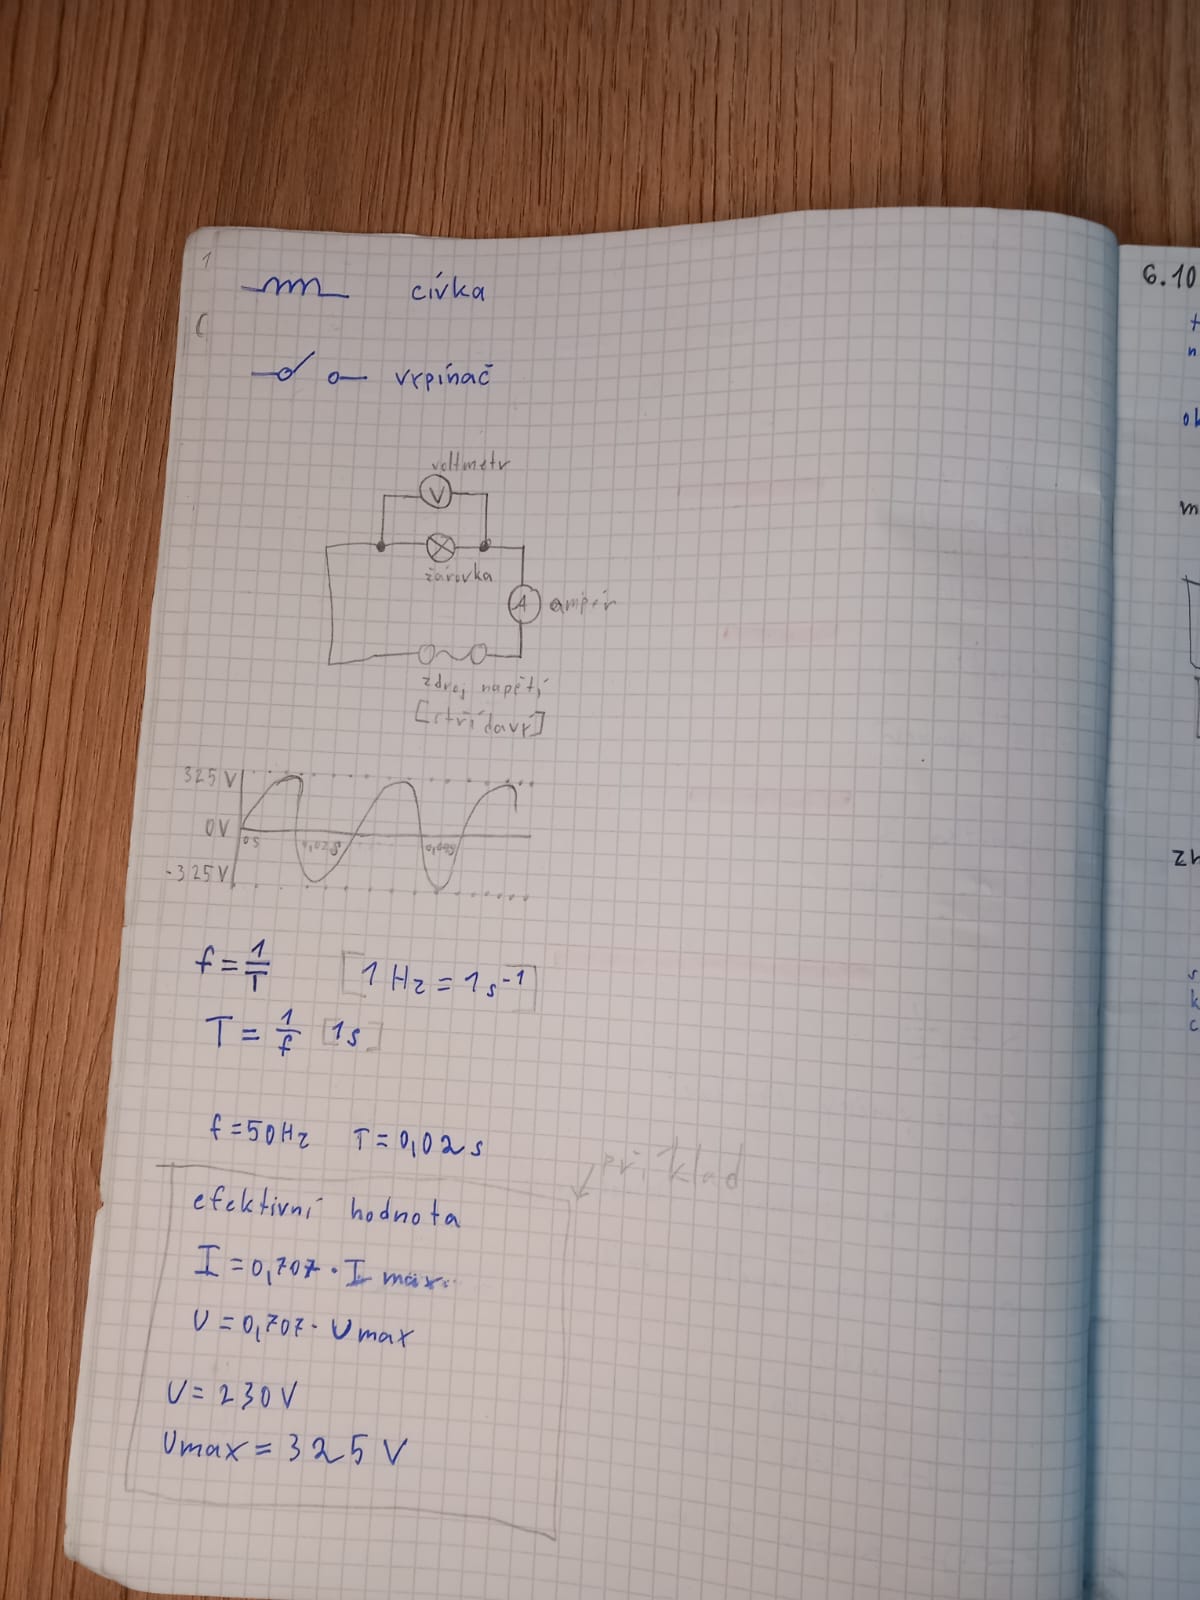 1
cívka
vypínač
voltmetr
V
žárovka
A ampér
zdroj napětí
[střídavý]
325 V
0V
0s 0,02s
-325V
f = 1/T [1 Hz = 1 s⁻¹]
T = 1/f [1s]
f = 50Hz T = 0,02 s
příklad
efektivní hodnota
I = 0,707 · I max
U = 0,707 · U max
U = 230 V
Umax = 325 V
6.10
ok
m
zn
s
k
c